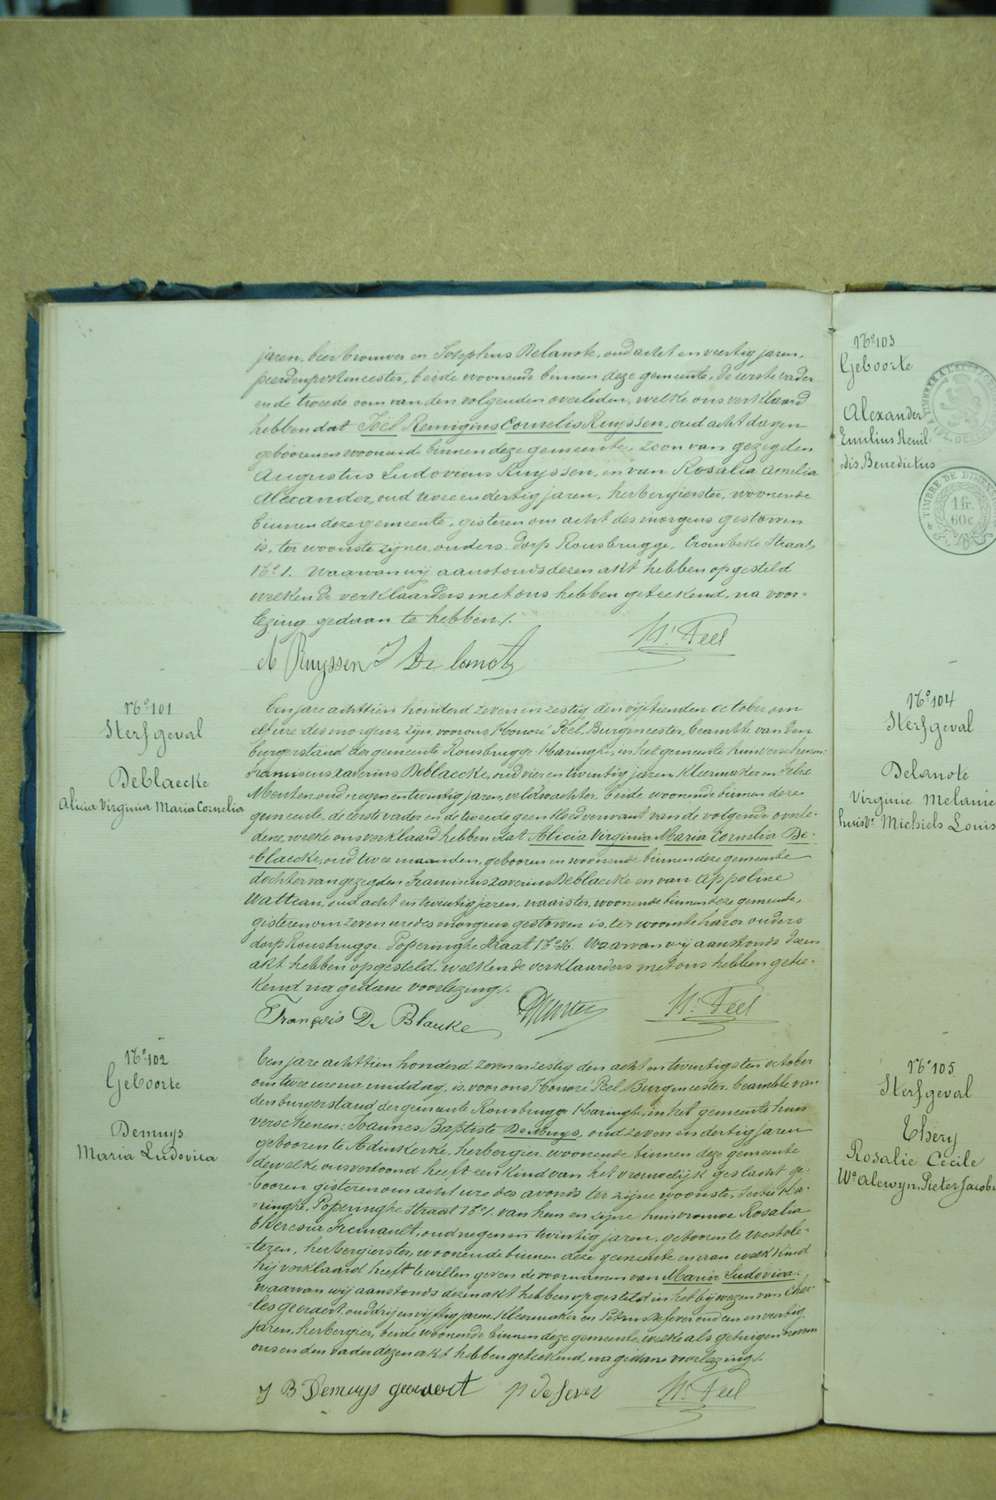 jaren, bierbrouwer en Josephus Delanote, oud acht en veertig jaren,
peerdenpostmeester, beide woonende binnen deze gemeente, de eerste vader
en de tweede oom van den volgenden overleden, welke ons verklaard
hebben dat Joël Remigius Cornelis Ruyssen, oud acht dagen
geboren en woonend binnen deze gemeente, zoon van gezegden
Augustus Ludovicus Ruyssen, en van Rosalia Amelia
Alexander, oud twee en dertig jaren, herbergierster, woonende
binnen deze gemeente, gisteren om acht des morgens gestorven
is, ter woonste zijner ouders dorp Rousbrugge, Crombeke Straat,
N° 1. Waarvan wij aanstonds dezen akt hebben opgesteld
welken de verklaarders met ons hebben geteekend, na voor-
lezing gedaan te hebben /.
A Ruyssen J De lanote H. Feel
N° 101
Sterfgeval
Deblaecke
Alicia Virginia Maria Cornelia
Een jare achttien honderd zeven en zestig den vijftienden october om
elf ure des morgens, zijn voor ons Honoré Feel, Burgmeester, beambte van den
burgerstand der gemeente Rousbrugge Haringhe, in het gemeente huis verschenen:
Franciscus Xaverius Deblaecke, oud vier en twintig jaren, kleermaker en Felix
Merten, oud negen en twintig jaren, veldwachter, beide woonende binnen deze
gemeente, de eerste vader en de tweede geen bloedverwant van de volgende overle-
dene, welke ons verklaard hebben dat Alicia Virginia Maria Cornelia De-
blaecke, oud twee maanden, geboren en woonende binnen deze gemeente
dochter van gezegden Franciscus Xaverius Deblaecke en van Appoline
Wattean, oud acht en twintig jaren, naaister, woonende binnen deze gemeente,
gisteren om zeven ure des morgens gestorven is, ter woonste harer ouders
dorp Rousbrugge, Poperinghe Straat N° 26. Waarvan wij aanstonds dezen
akt hebben opgesteld, welken de verklaarders met ons hebben getee-
kend na gedane voorlezing /.
François De Blaecke H. Feel
N° 102
Geboorte
Demuys
Maria Ludovica
Een jare achttien honderd zeven en zestig den acht en twintigsten october
om twee ure na middag, is voor ons Honoré Feel Burgmeester, beambte van
den burgerstand der gemeente Rousbrugge Haringhe, in het gemeente huis
verschenen: Joannes Baptiste Demuys, oud zeven en dertig jaren
geboren te Adinkerke, herbergier, woonende binnen deze gemeente
dewelke ons vertoond heeft een kind van het vrouwelijk geslacht ge-
booren gisteren om acht ure des avonds ter zijne woonste, sectie Ha-
ringhe, Poperinghe Straat N° 1. van hem en zijne huisvrouwe Rosalia
Theresia Fremault, oud negen en twintig jaren, geboren te Westvle-
teren, herbergierster, woonende binnen deze gemeente en aan welk kind
hij verklaard heeft te willen geven de voornamen van Maria Ludovica.
waarvan wij aanstonds dezen akt hebben opgesteld in het bijwezen van Char-
les Gevaert, oud drij en vijftig jaren, kleermaker en Petrus Defever, oud een en veertig
jaren, herbergier, beide woonende binnen deze gemeente, welke als getuigen nevens
ons en den vader dezen akt hebben geteekend, na gedane voorlezing /.
J B Demuys gevaert p defever H. Feel
N° 103
Geboorte
Alexander
Emilius Remi-
dis Benedictus
TIMBRE DE DIMENSION
1 fr.
60 c
N° 104
Sterfgeval
Delanote
Virginie Melanie
huisv. Michiels Louis
N° 105
Sterfgeval
Théry
Rosalie Cécile
We Alewyn, Pieter Jacobus